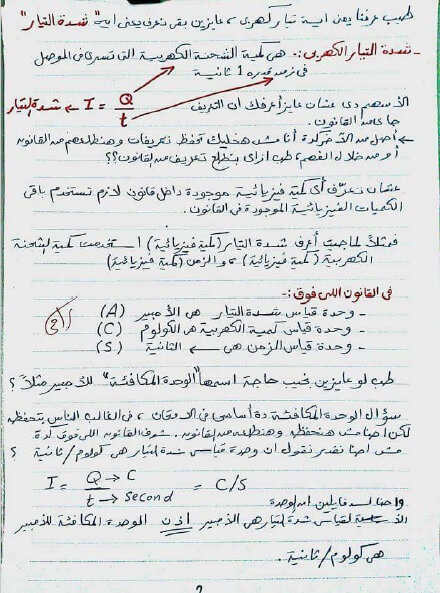 طيب عرفنا يعني ايه تيار كهربي، عايزين بقى نعرف يعني ايه "شدة التيار"
- شدة التيار الكهربي :- هي كمية الشحنة الكهربية التي تسري في الموصل
في زمن قدره 1 ثانية
I = Q / t ← شدة التيار
الأسهم دي عشان عايز أعرفك ان التعريف
جاي من القانون.
أصل من الآخر كدة أنا مش هخليك تحفظ تعريفات وهنطلعهم من القانون
أو من خلال الفهم، طب ازاي بنطلع تعريف من القانون؟؟
عشان نعرف أي كمية فيزيائية موجودة داخل قانون لازم نستخدم باقي
الكميات الفيزيائية الموجودة في القانون.
فمثلاً لما جيت أعرف شدة التيار (كمية فيزيائية) استخدمت كمية الشحنة
الكهربية (كمية فيزيائية)، والزمن (كمية فيزيائية)
في القانون اللي فوق :-
- وحدة قياس شدة التيار هي الأمبير (A)
- وحدة قياس كمية الكهربية هي الكولوم (C)
- وحدة قياس الزمن هي ← الثانية (S)
طب لو عايزين نجيب حاجة اسمها "الوحدة المكافئة" للأمبير مثلاً؟
سؤال الوحدة المكافئة دة أساسي في الامتحانات، في الغالب الناس بتحفظه
لكن احنا مش هنحفظه وهنطلعه من القانون. شوف القانون اللي فوق كدة
مش احنا نقدر نقول ان وحدة قياس شدة التيار هي كولوم/ثانية ؟
I = Q → C / t → second = C/S
واحنا لسه قايلين ان وحدة
قياس شدة التيار هي الأمبير اذن الوحدة المكافئة للأمبير
هي كولوم/ثانية.
2